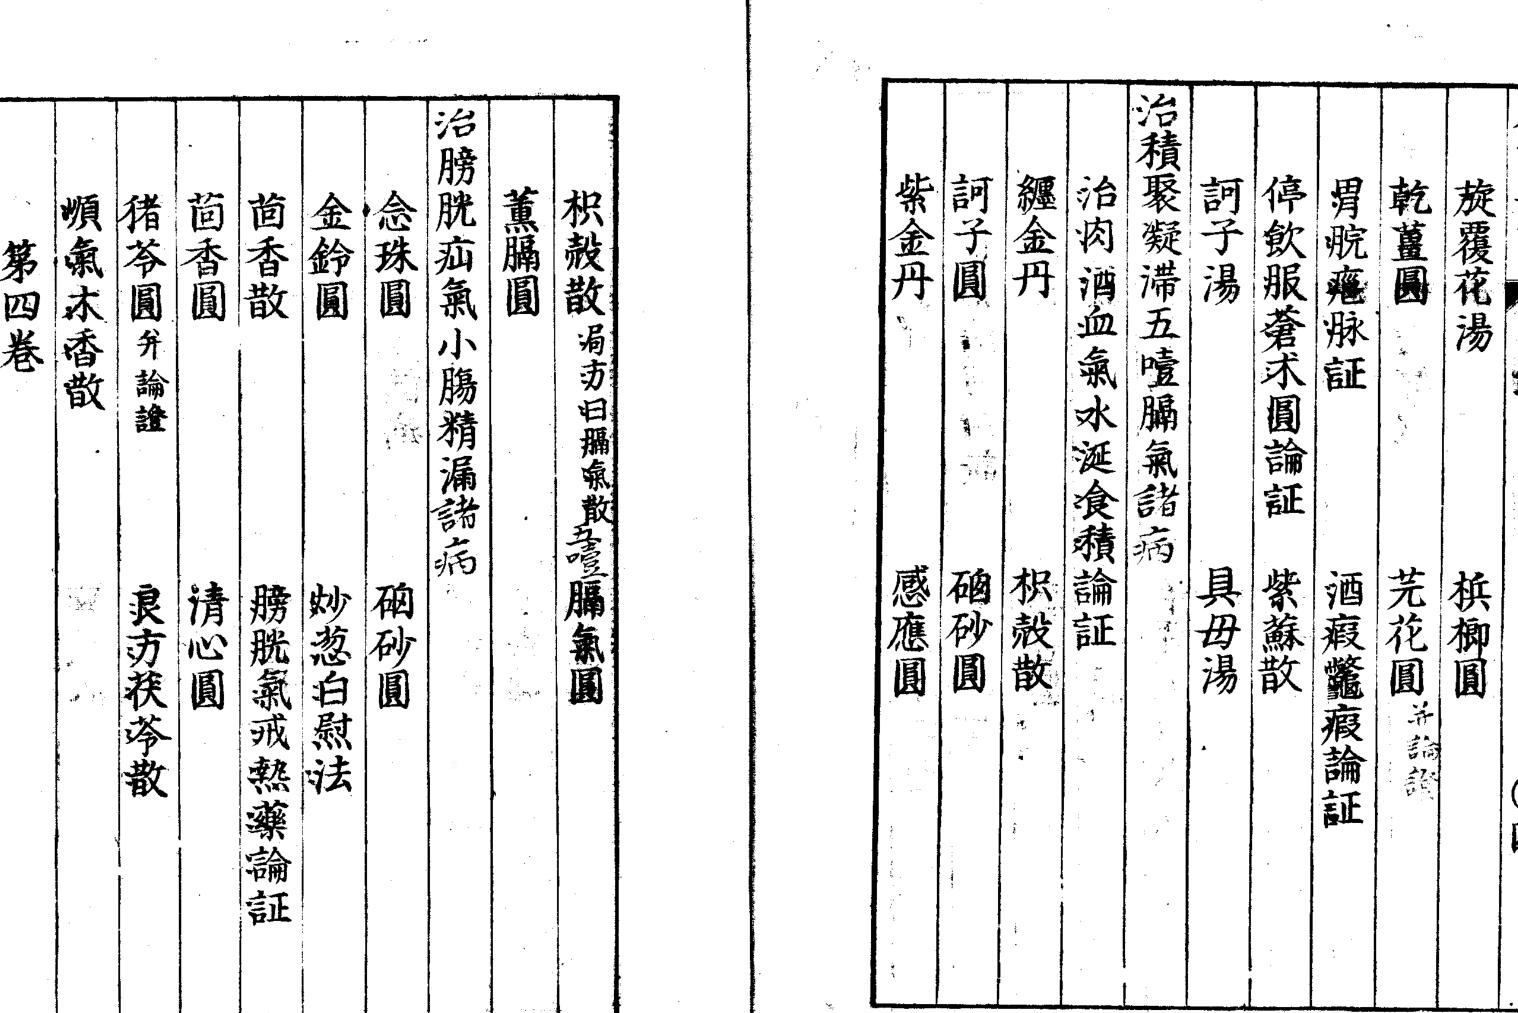 旋覆花湯　梹榔圓
乾薑圓　芫花圓并論證
胃脘癰脉証　酒瘕鼈瘕論証
停飲服蒼朮圓論証　紫蘇散
訶子湯　具毋湯
治積聚凝滯五噎膈氣諸病
治肉酒血氣水涎食積論証
纏金丹　枳殼散
訶子圓　硇砂圓
紫金丹　感應圓
枳殼散局方曰膈氣散　五噎膈氣圓
薰膈圓
治膀胱疝氣小膓精漏諸病
念珠圓　硇砂圓
金鈴圓　炒葱白慰法
茴香散　膀胱氣戒熱藥論証
茴香圓　清心圓
猪苓圓并論證　良方茯苓散
順氣木香散
第四卷